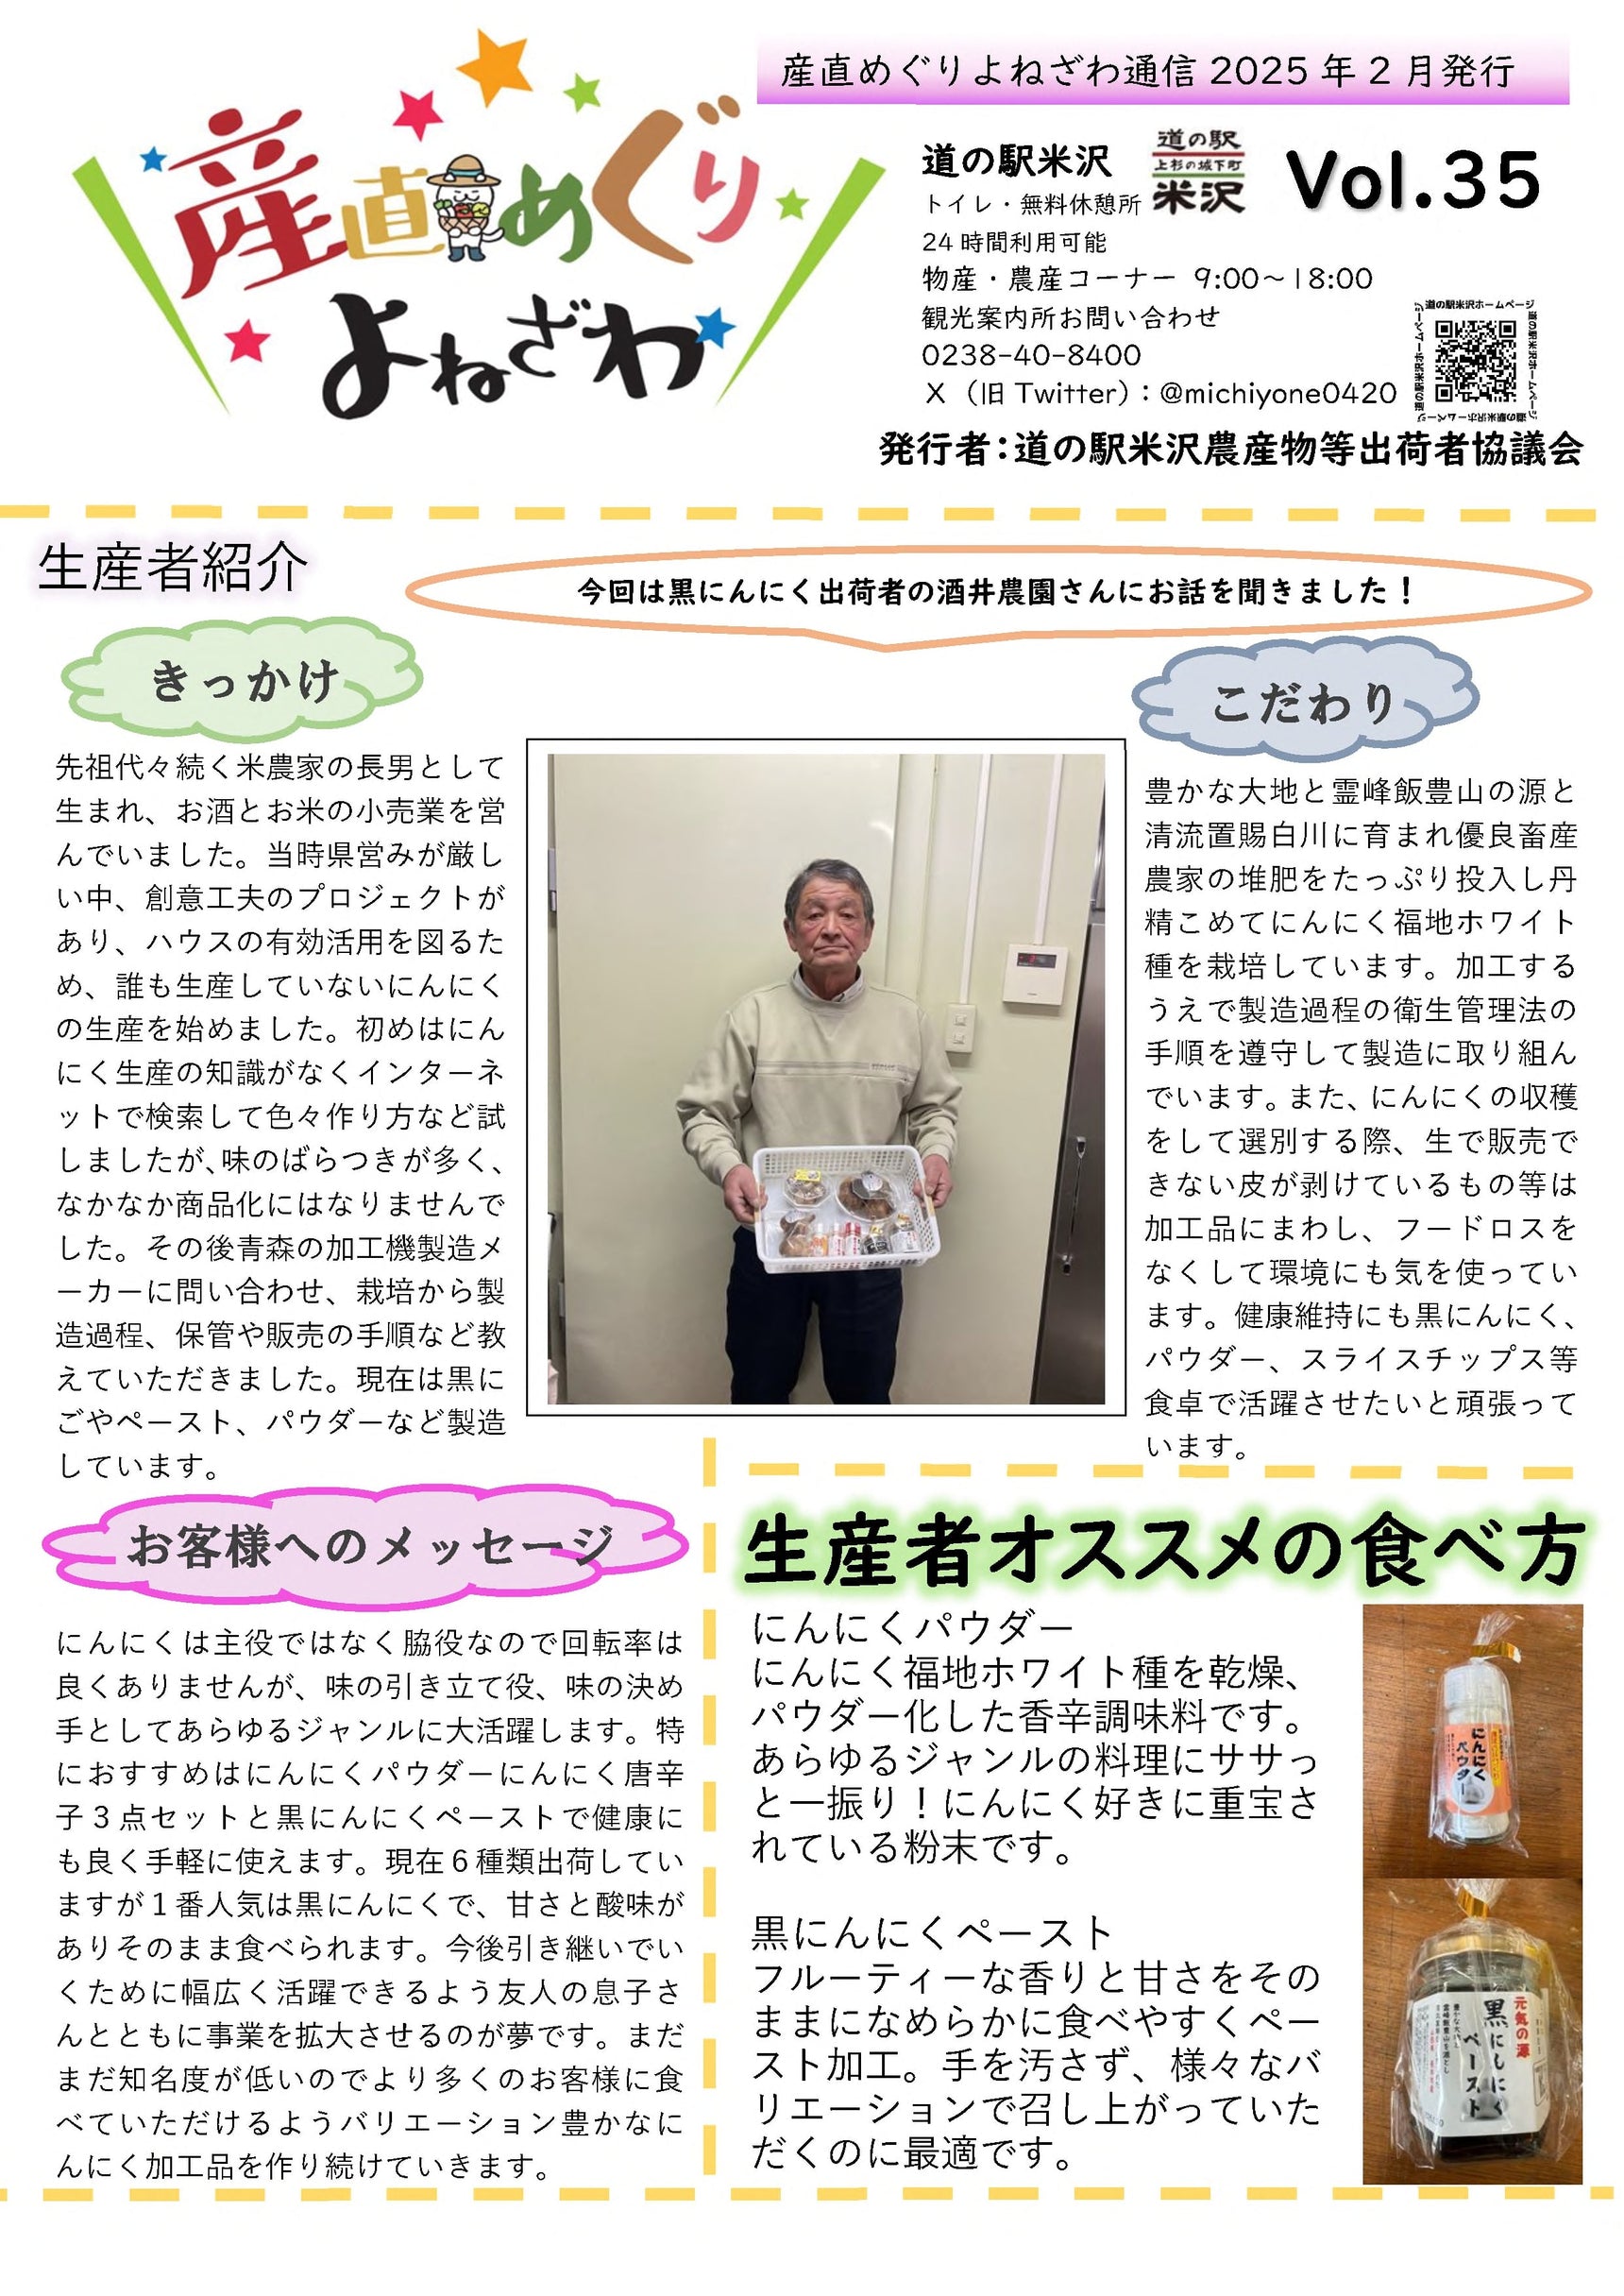 産直めぐり
よねざわ
産直めぐりよねざわ通信 2025 年 2 月発行
道の駅米沢
道の駅
上杉の城下町
米沢
Vol.35
トイレ・無料休憩所
24 時間利用可能
物産・農産コーナー 9:00～18:00
観光案内所お問い合わせ
0238-40-8400
X （旧 Twitter）：@michiyone0420
道の駅米沢ホームページ
道の駅米沢ホームページ
道の駅米沢ホームページ
道の駅米沢ホームページ
発行者：道の駅米沢農産物等出荷者協議会
生産者紹介
今回は黒にんにく出荷者の酒井農園さんにお話を聞きました！
きっかけ
先祖代々続く米農家の長男として
生まれ、お酒とお米の小売業を営
んでいました。当時県営みが厳し
い中、創意工夫のプロジェクトが
あり、ハウスの有効活用を図るた
め、誰も生産していないにんにく
の生産を始めました。初めはにん
にく生産の知識がなくインターネ
ットで検索して色々作り方など試
しましたが、味のばらつきが多く、
なかなか商品化にはなりませんで
した。その後青森の加工機製造メ
ーカーに問い合わせ、栽培から製
造過程、保管や販売の手順など教
えていただきました。現在は黒に
ごやペースト、パウダーなど製造
しています。
こだわり
豊かな大地と霊峰飯豊山の源と
清流置賜白川に育まれ優良畜産
農家の堆肥をたっぷり投入し丹
精こめてにんにく福地ホワイト
種を栽培しています。加工する
うえで製造過程の衛生管理法の
手順を遵守して製造に取り組ん
でいます。また、にんにくの収穫
をして選別する際、生で販売で
きない皮が剥けているもの等は
加工品にまわし、フードロスを
なくして環境にも気を使ってい
ます。健康維持にも黒にんにく、
パウダー、スライスチップス等
食卓で活躍させたいと頑張って
います。
お客様へのメッセージ
にんにくは主役ではなく脇役なので回転率は
良くありませんが、味の引き立て役、味の決め
手としてあらゆるジャンルに大活躍します。特
におすすめはにんにくパウダーにんにく唐辛
子３点セットと黒にんにくペーストで健康に
も良く手軽に使えます。現在６種類出荷してい
ますが１番人気は黒にんにくで、甘さと酸味が
ありそのまま食べられます。今後引き継いでい
くために幅広く活躍できるよう友人の息子さ
んとともに事業を拡大させるのが夢です。まだ
まだ知名度が低いのでより多くのお客様に食
べていただけるようバリエーション豊かなに
んにく加工品を作り続けていきます。
生産者オススメの食べ方
にんにくパウダー
にんにく福地ホワイト種を乾燥、
パウダー化した香辛調味料です。
あらゆるジャンルの料理にササっ
と一振り！にんにく好きに重宝さ
れている粉末です。
黒にんにくペースト
フルーティーな香りと甘さをその
ままになめらかに食べやすくペー
スト加工。手を汚さず、様々なバ
リエーションで召し上がっていた
だくのに最適です。
にんにく
パウダー
元気の源
黒にんにく
ペースト